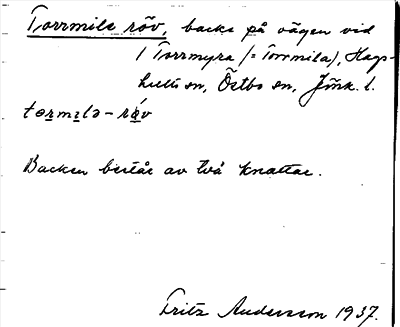 Torrmile röv, backe på vägen vid
/ Torrmyra (= Torrmila), Hags-
hults sn, Östbo sn, Jönk. l.
tormilə-räv
Backen består av två knattar.
Fritz Andersson 1937.